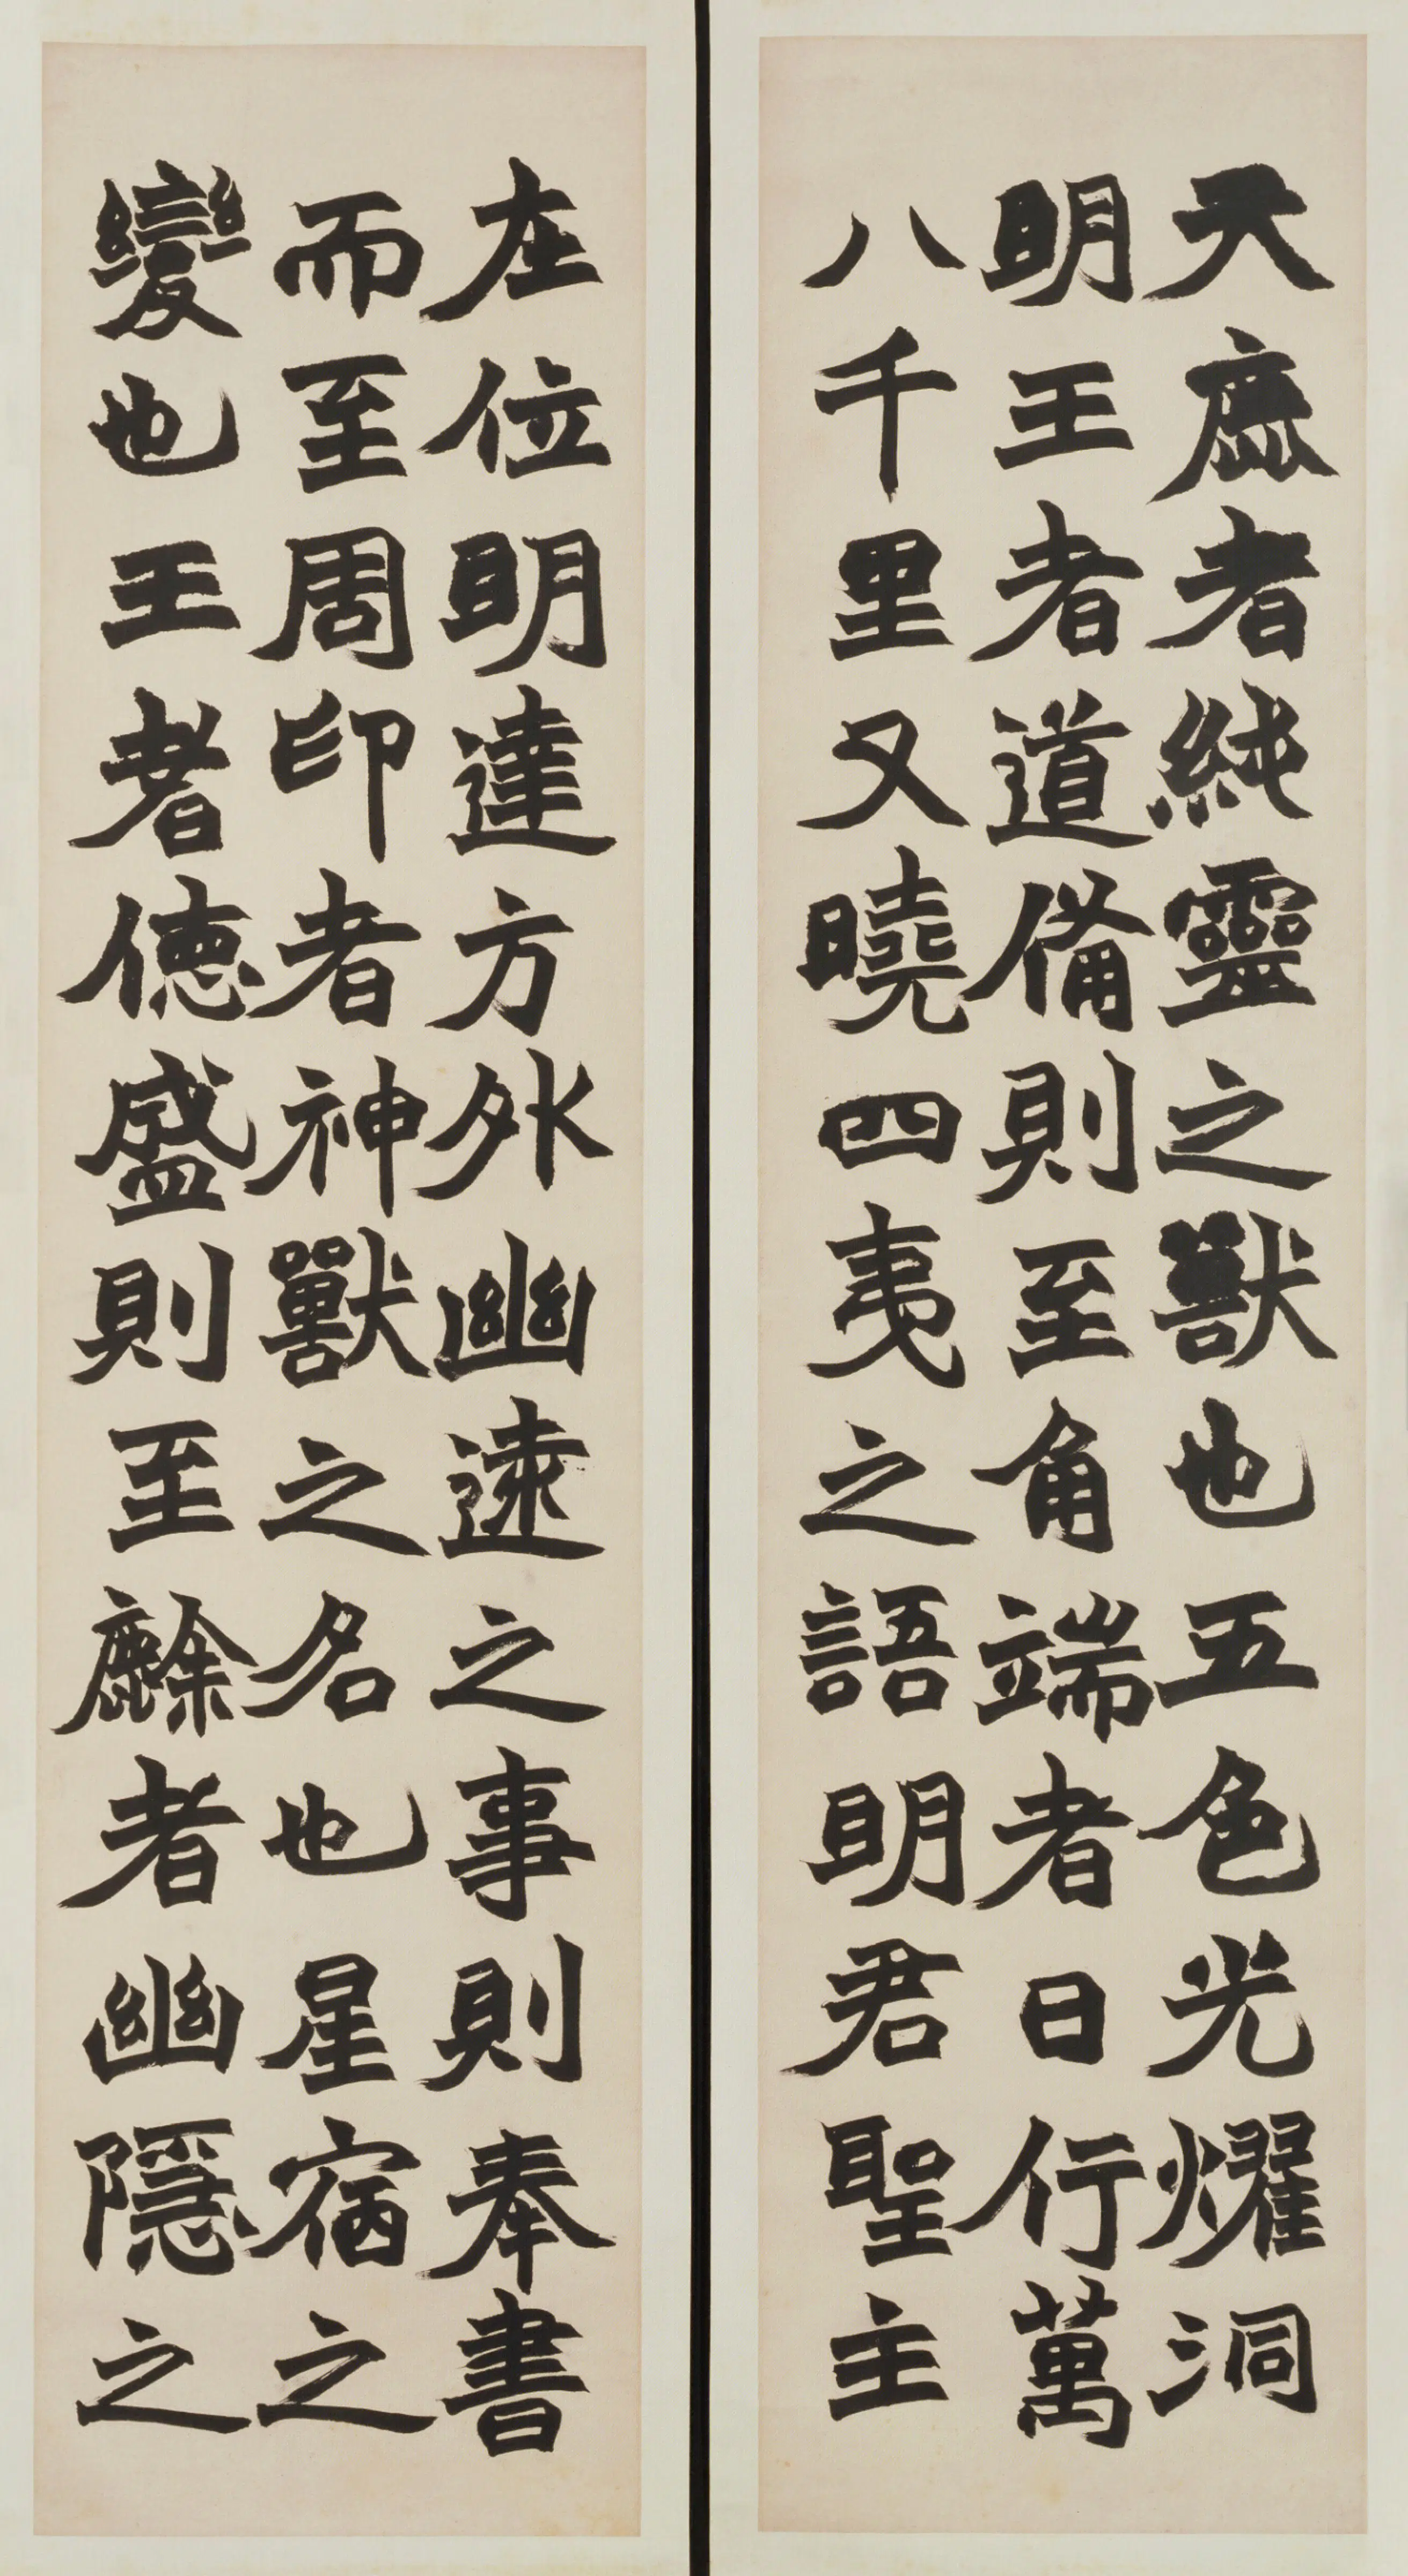 天鹿者純靈之獸也五色光耀洞
明王者道備則至角端者日行萬
八千里又曉四夷之語明君聖主
在位明達方外幽遠之事則奉書
而至周印者神獸之名也星宿之
變也王者德盛則至麜者幽隱之